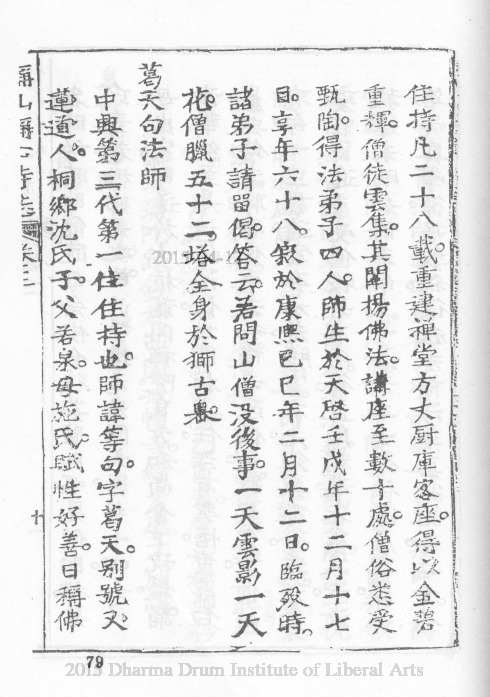 住持凡二十八載。重建禪堂方丈厨庫客座。得以金碧
重輝。僧徒雲集。其闡揚佛法。講座至數十處。僧俗悉受
甄陶。得法弟子四人。師生於天啓壬戌年十二月十七
日。享年六十八。寂於康熈己巳年二月十二日。臨殁時。
諸弟子請留偈。答云。若問山僧没後事。一天雲影一天
花。僧臘五十二。塔全身於獅古嶴。
葛天句法師
中興第三代第一住住持也。師諱等句。字葛天。别號又
蓮道人。桐鄉沈氏子。父若泉。母施氏。賦性好善。日稱佛
稱山稱心寺志 卷三
十
79
2013 Dharma Drum Institute of Liberal Arts